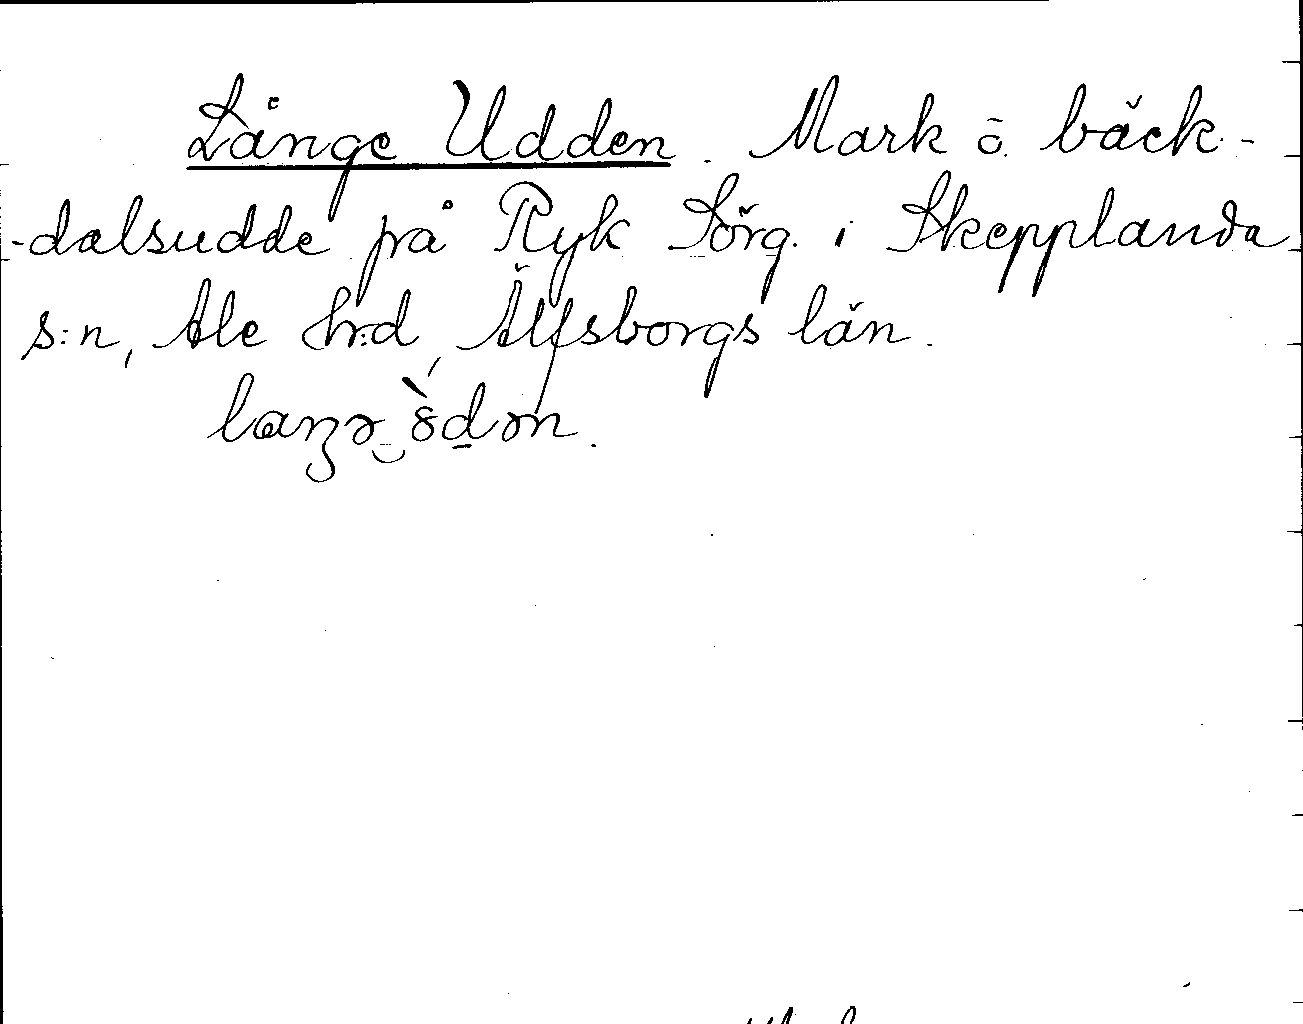 Långe Udden. Mark ō. bäck-
-dalsudde på Ryk Sörg. i Skepplanda
s:n, Ale h:d, Älfsborgs län.